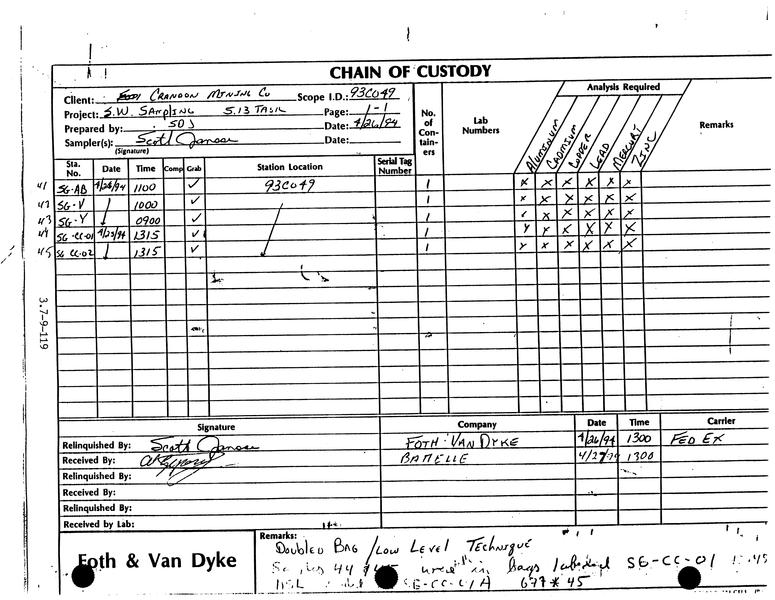 CHAIN OF CUSTODY
Client: CRANDON MINING CO Scope I.D.: 93C049
Project: S.W. SAMPLING 5.13 TASK Page: 1-1
Prepared by: SDJ Date: 4/26/94
Sampler(s): Scott Jansen Date:
(Signature)
No. of Con-tain-ers
Lab Numbers
Analysis Required
ALUMINUM CADMIUM COPPER LEAD MERCURY ZINC
Remarks
Sta. No. Date Time Comp Grab Station Location Serial Tag Number
41 SG-AB 4/26/94 1100 ✓ 93C049 1 X X X X X X
42 SG-V 1000 ✓ 1 X X X X X X
43 SG-Y 0900 ✓ 1 X X X X X X
44 SG-CC-01 4/25/94 1315 ✓ 1 X X X X X X
45 SG CC-02 1315 ✓ 1 X X X X X X
3.7-9-119
Signature Company Date Time Carrier
Relinquished By: Scott Jansen FOTH & VAN DYKE 4/26/94 1300 FED EX
Received By: BATTELLE 4/27/94 1300
Relinquished By:
Received By:
Relinquished By:
Received by Lab:
Foth & Van Dyke
Remarks:
DOUBLED BAG / LOW LEVEL TECHNIQUE
44 45 in bags labeled SG-CC-01
SG-CC-01A 677*45